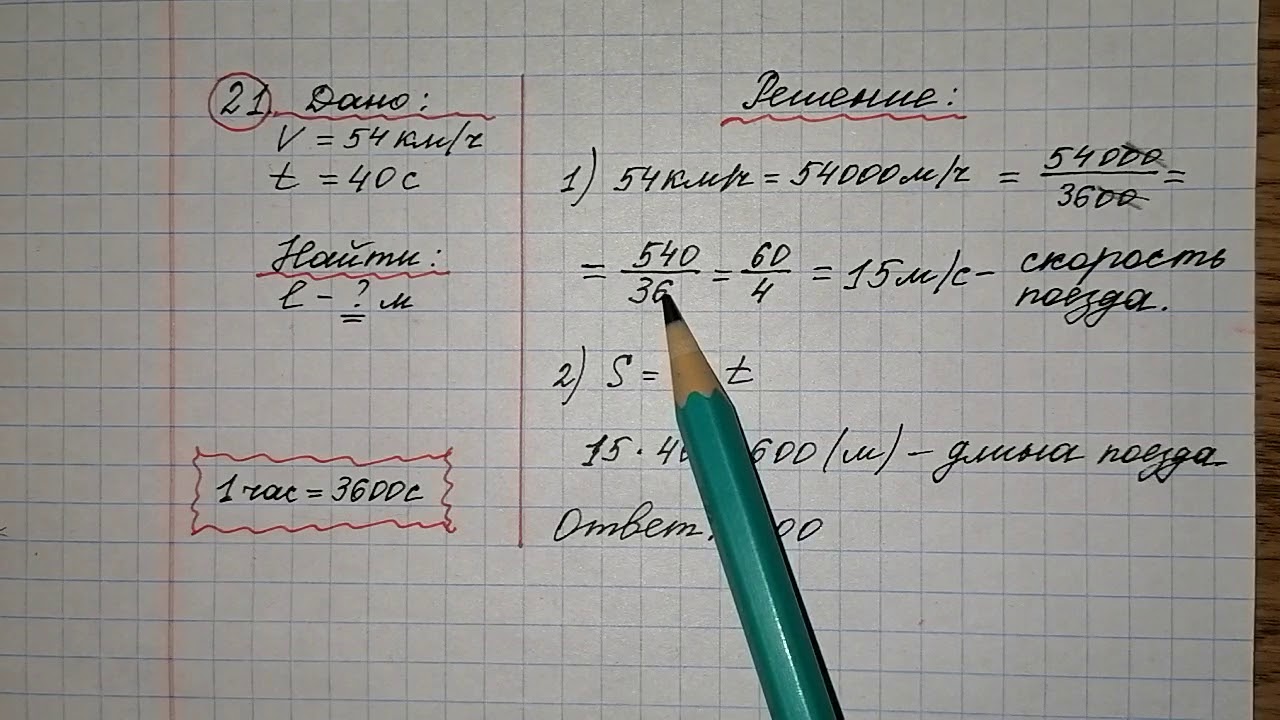 21 Дано:
V = 54 км/ч
t = 40 с
Найти:
l - ? м
1 час = 3600 с
Решение:
1) 54 км/ч = 54000 м/ч = 54000/3600 =
= 540/36 = 60/4 = 15 м/с - скорость
поезда.
2) S = t
15 · 600 (м) - длина поезда
Ответ